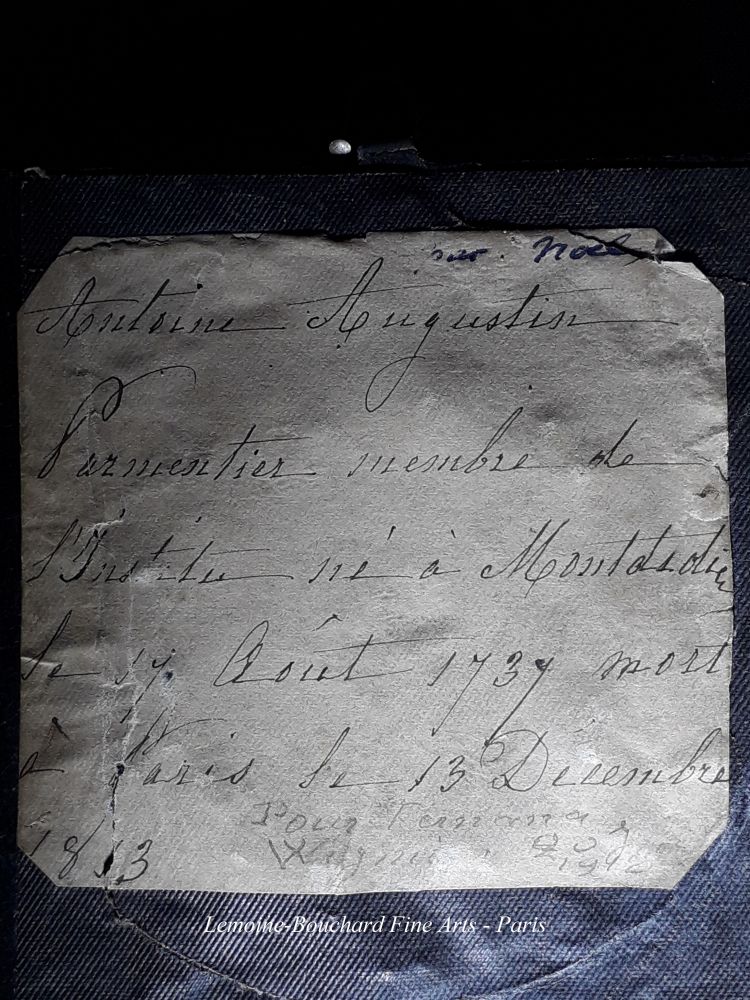 par. Noël
Antoine Augustin
Parmentier membre de
l'Institu né à Montdidier
le 17 Août 1737 mort
à Paris le 13 Décembre
1813
Pour
Lemoine-Bouchard Fine Arts - Paris